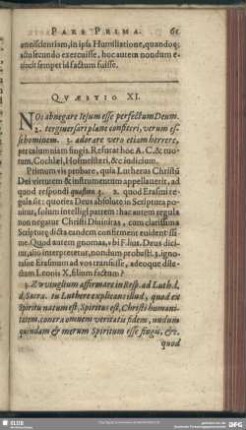 PARS PRIMA. 61
omniscientiam, in ipsa Humiliatione, quandoq;
actu secundo exercuisse. hoc autem nondum e-
vincit semper id factum fuisse.
QVÆSTIO XI.
NOs abnegare Iesum esse perfectum Deum.
2. tergiversari plane confiteri, verum es-
hominem. 3. adorare vero etiam horrere,
per calumniam fingis. Refutat hoc A. C. &
Cochlei, Hofmeisteri, & judicium.
Primum vis probare, quia Lutherus Christũ
Dei virtutem & instrumentum appellaverit, ad
quod respondi quæstione 3. 2. quod Erasmi re-
gula sit: quoties Deus absolute in Scriptura po-
nitur, solum intelligi patrem: hac autem regula
non negatur Christi Divinitas, cum clarissima
Scripturæ dicta eandem confirment evidentissi-
me. Quod autem gnomas, ubi Filius Deus dici-
tur, alio interpretetur, nondum probasti. 3. igno-
Erasmum ad vos transisse, adeoque dile-
Leonis X. filium factum?
3. Zvvinglium affirmare in Resp. ad Luth. l.
d. Sacra. tu Luthere explicans illud, quod ex
Spiritu natum est, Spiritus est, Christi humani-
tatem contra omnem veritatis fidem, nudum
quendam & merum Spiritum esse fingis, &c.
quod
SLUB
DFG